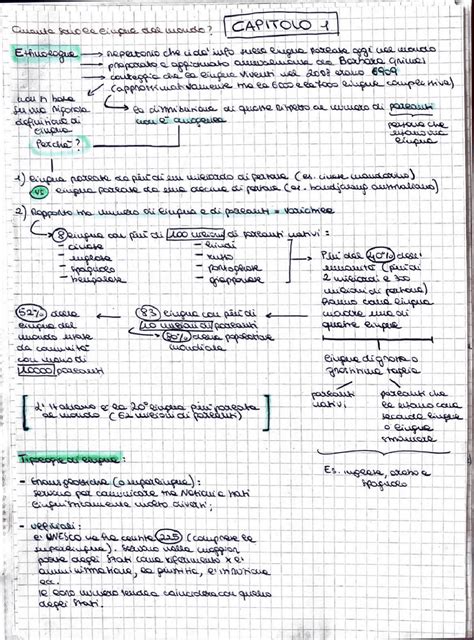 Quante sono le lingue del mondo?
CAPITOLO 1
Ethnologue
repertorio che ci dà info sulle lingue parlate oggi nel mondo
preparato e aggiornato annualmente da Barbara Grimes
conteggia che le lingue viventi nel 2009 erano 6909
(approssimativamente tra le 6000 e le 7000 lingue complessive)
non si basa
su una rigorosa
definizione di
lingua
la distribuzione di queste rispetto al numero di parlanti
non è omogenea
persone che
usano una
lingua
Perché?
1) lingue parlate da più di un miliardo di persone (es. cinese mandarino)
VS lingue parlate da una decina di persone (es. australiano)
2) Rapporto tra numero di lingue e di parlanti = variabile
8 lingue con più di 100 milioni di parlanti nativi:
- cinese
- inglese
- spagnolo
- bengalese
- hindi
- russo
- portoghese
- giapponese
Più del 40% dell'
umanità (più di
2 miliardi e 300
milioni di persone)
hanno come lingua
madre una di
queste lingue
83 lingue con più di
10 milioni di parlanti
80% della popolazione
mondiale
52% delle
lingue del
mondo usate
da comunità
con meno di
10000 parlanti
lingue di grande o
grandissima taglia
parlanti
nativi
parlanti che
le usano come
seconda lingua
o lingua
straniera
Es. inglese, arabo e
spagnolo
[L'italiano è la 20° lingua più parlata
al mondo (62 milioni di parlanti)]
Tipologie di lingue:
- transglossiche (o superlingue):
servono per comunicare tra Nazioni e stati
linguisticamente molto diversi;
- ufficiali:
l'UNESCO ne ha contate 225 (comprese le
superlingue). Servono nella maggior
parte degli Stati come riferimento x l'
amministrazione, la giustizia, l'istruzione
ecc.
Il loro numero tende a coincidere con quello
degli Stati.